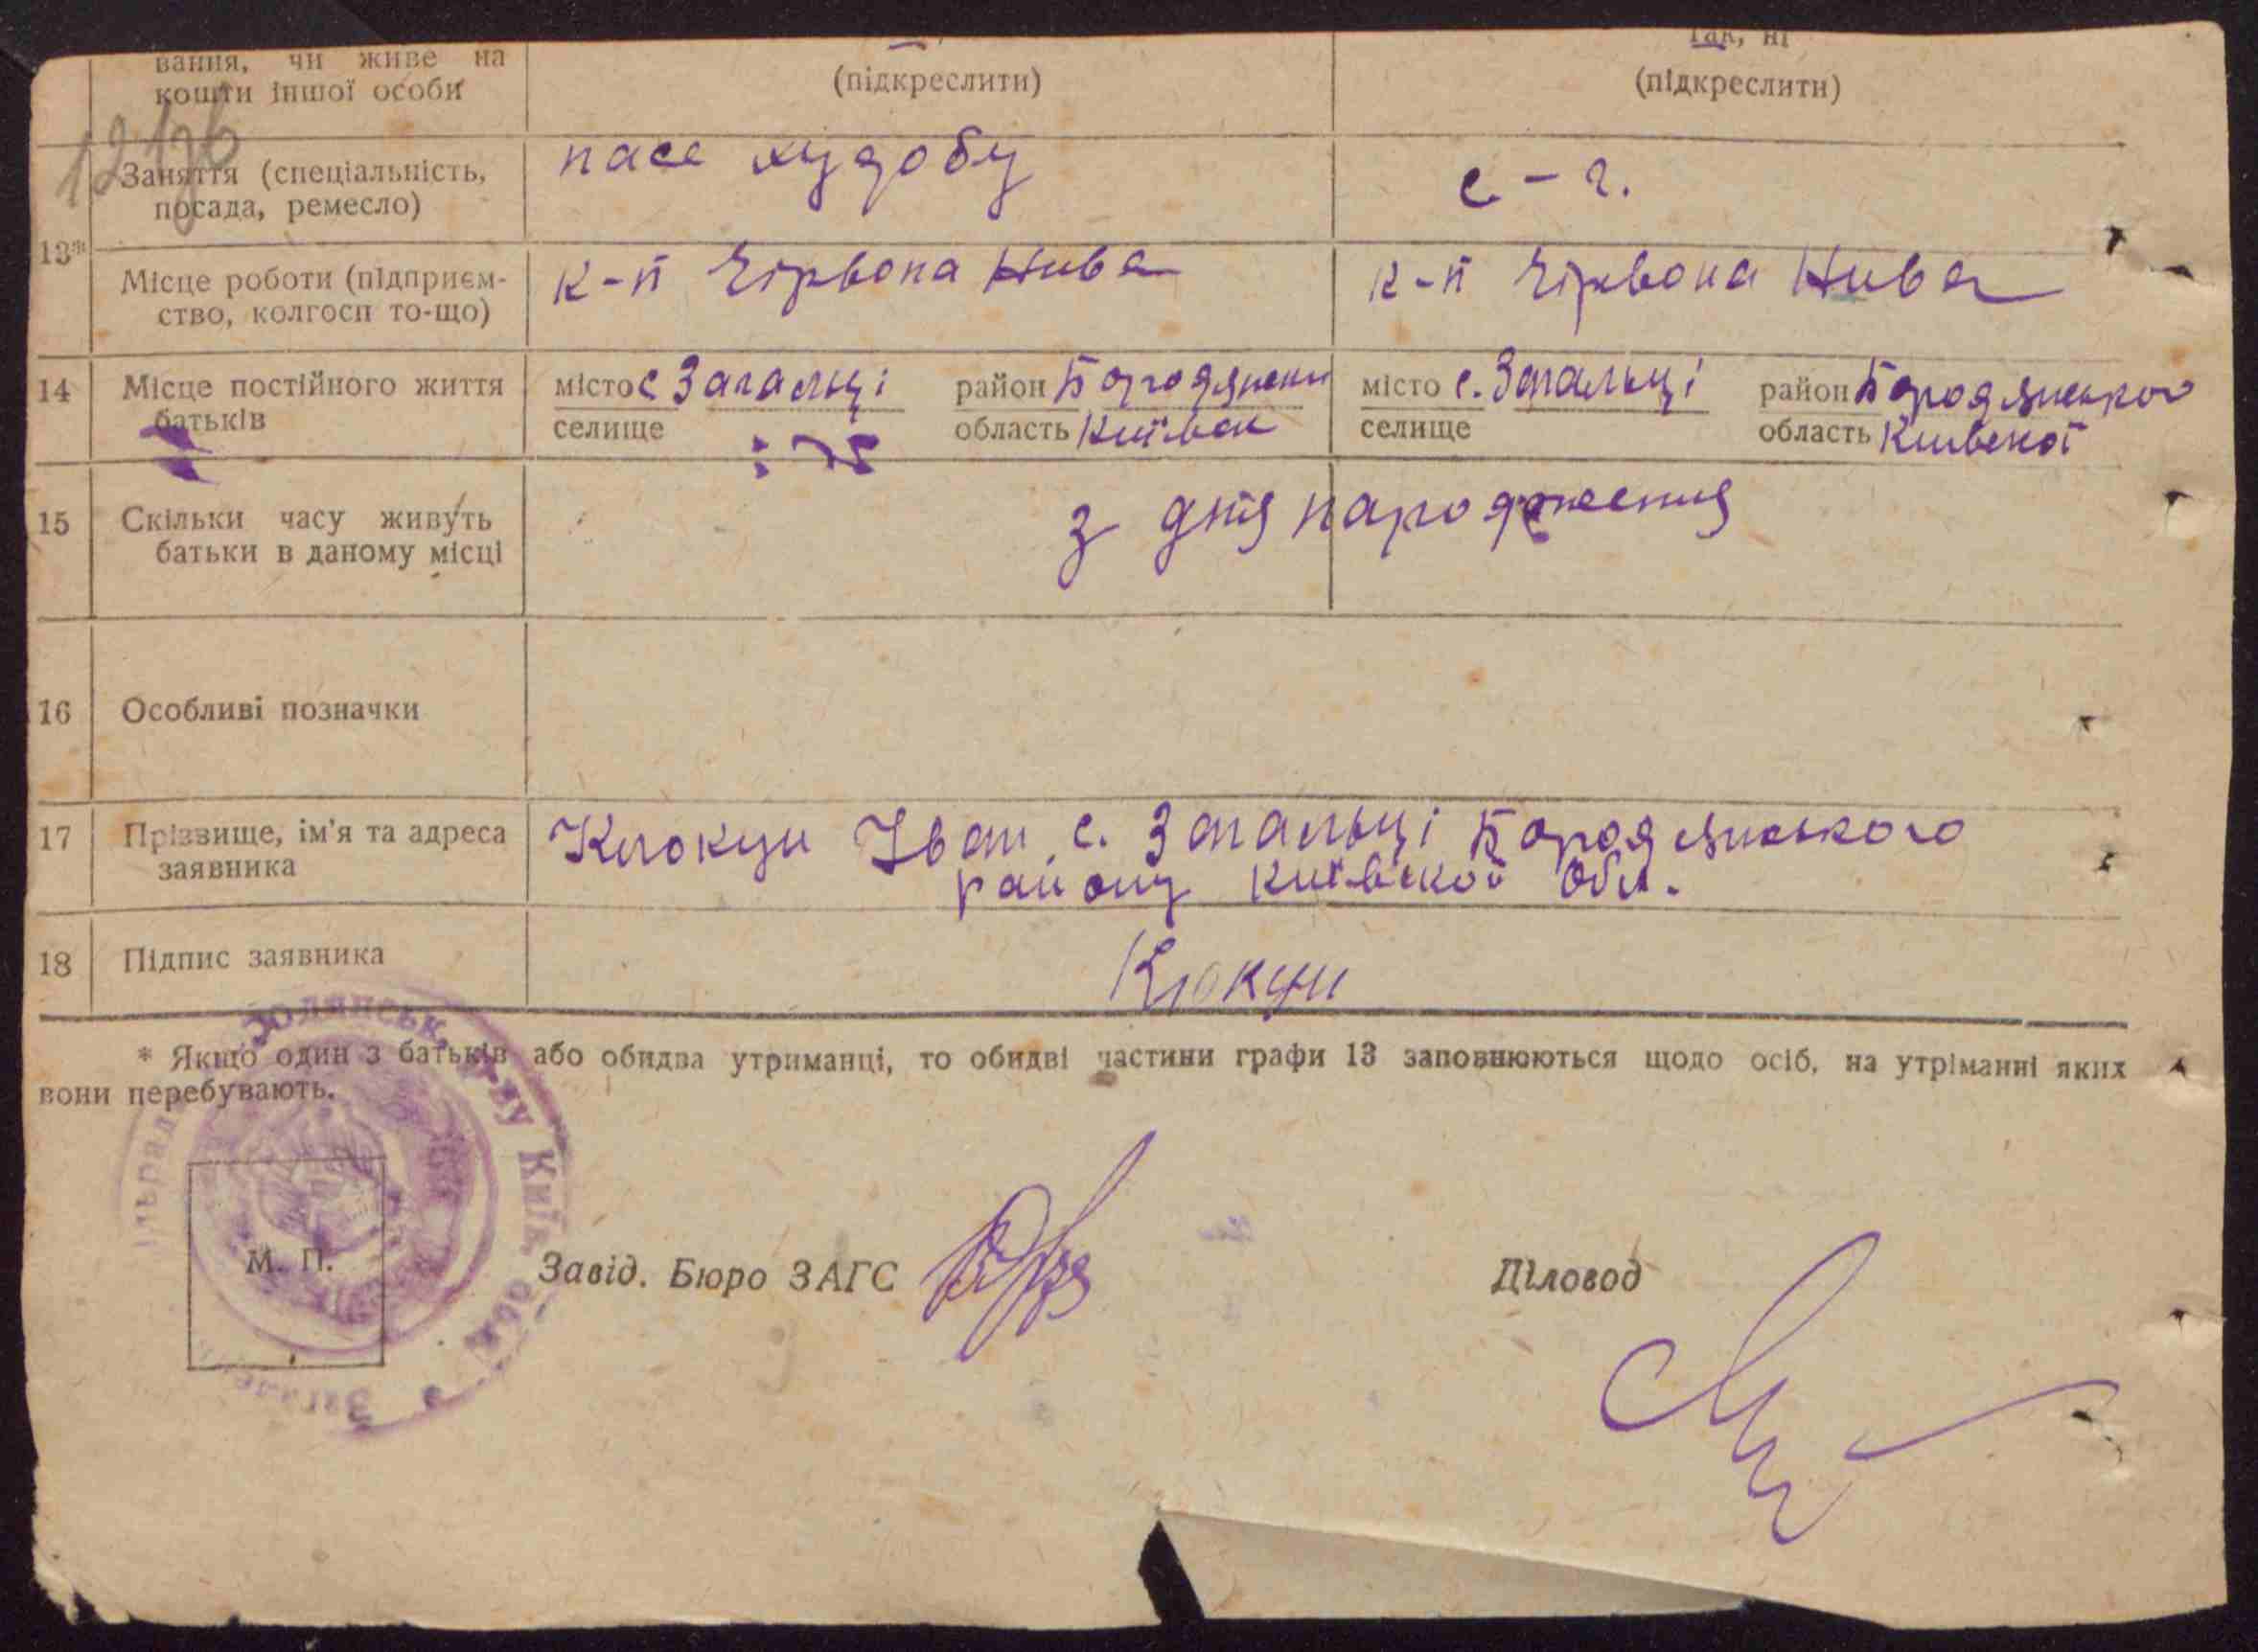 вання, чи живе на
кошти іншої особи
(підкреслити)
так, ні
(підкреслити)
13*
Заняття (спеціальність,
посада, ремесло)
пасе худобу
с-г.
Місце роботи (підприєм-
ство, колгосп то-що)
к-п Чірвона Нива
к-п Чірвона Нива
14
Місце постійного життя
батьків
місто с Загальці район Бородянськ
селище область Київськ
місто с. Загальці район Бородянського
селище область Київської
15
Скільки часу живуть
батьки в даному місці
з дня народження
16
Особливі позначки
17
Прізвище, ім'я та адреса
заявника
Клокун Іван с. Загальці Бородянського
району Київської обл.
18
Підпис заявника
Клокун
* Якщо один з батьків або обидва утриманці, то обидві частини графи 13 заповнюються щодо осіб, на утріманні яких
вони перебувають.
М. П.
Завід. Бюро ЗАГС
Діловод